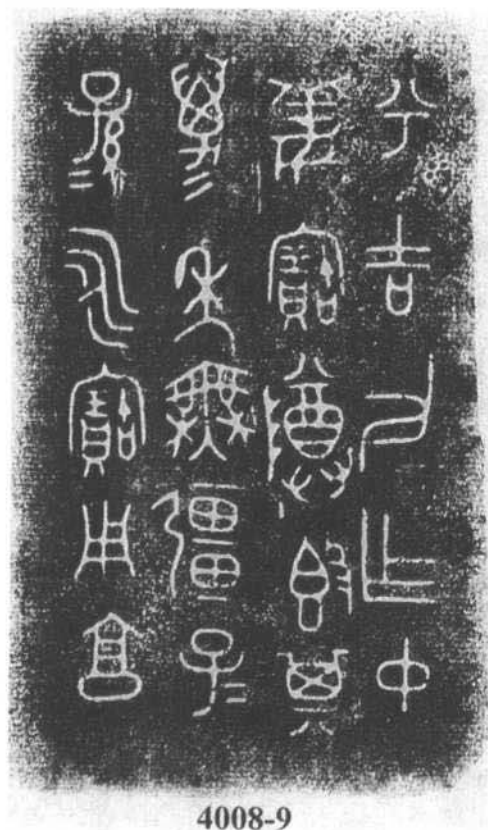 兮吉父乍中
姜寶𨺅𣪘其
萬年無彊子=
孫=永寶用享
4008-9